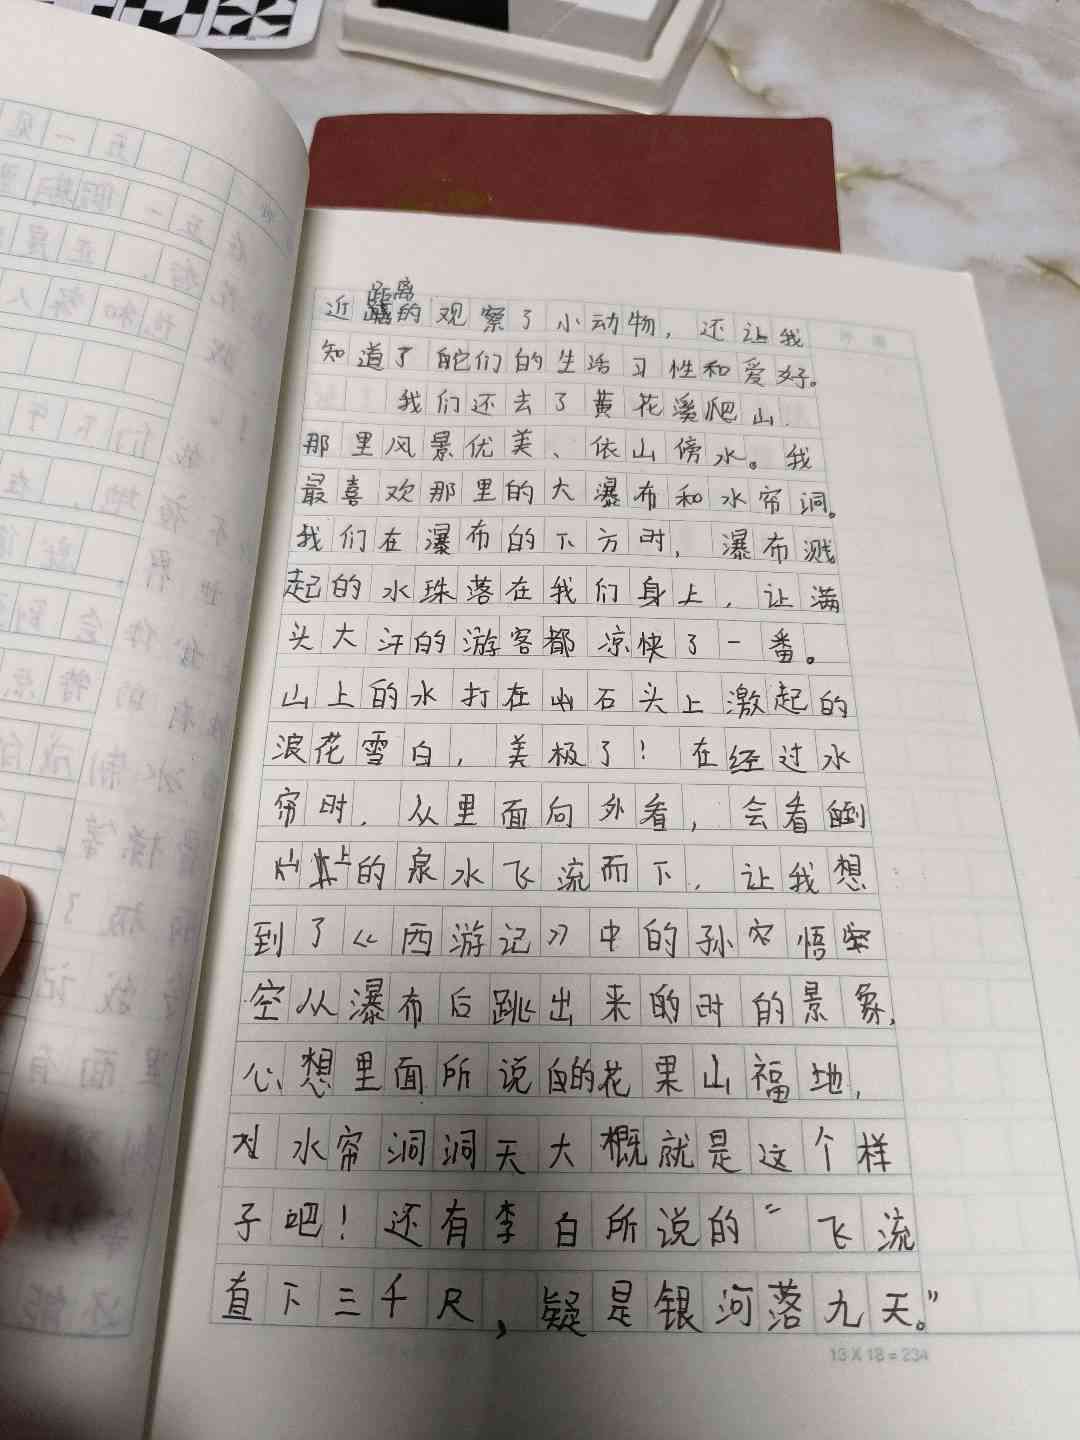 近距离的观察了小动物，还让我
知道了它们的生活习性和爱好。
我们还去了黄花溪爬山.
那里风景优美、依山傍水。我
最喜欢那里的大瀑布和水帘洞。
我们在瀑布的下方时，瀑布溅
起的水珠落在我们身上，让满
头大汗的游客都凉快了一番。
山上的水打在山石头上激起的
浪花雪白，美极了！在经过水
帘时，从里面向外看，会看到
山上的泉水飞流而下，让我想
到了《西游记》中的孙悟
空从瀑布后跳出来的时的景象，
心想里面所说的花果山福地，
水帘洞洞天大概就是这个样
子吧！还有李白所说的“飞流
直下三千尺，疑是银河落九天。”
13×18=234